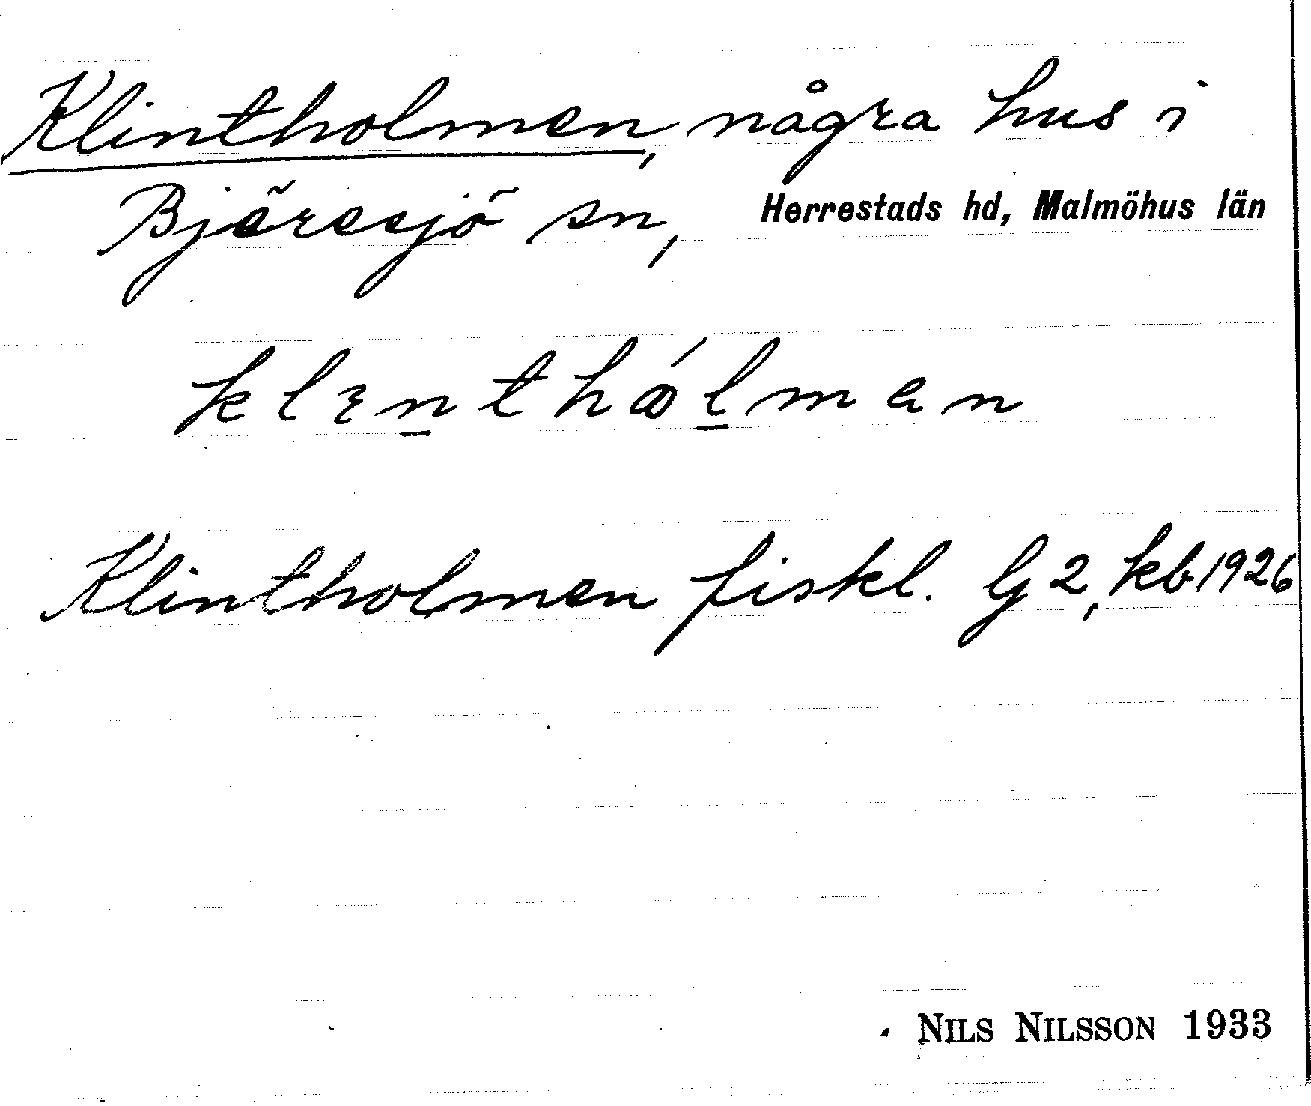 Klintholmen, några hus i
Bjäresjö sn, Herrestads hd, Malmöhus län
klɛn̲thǿl̲mən
Klintholmen fiskl. G 2, kb 1926
NILS NILSSON 1933